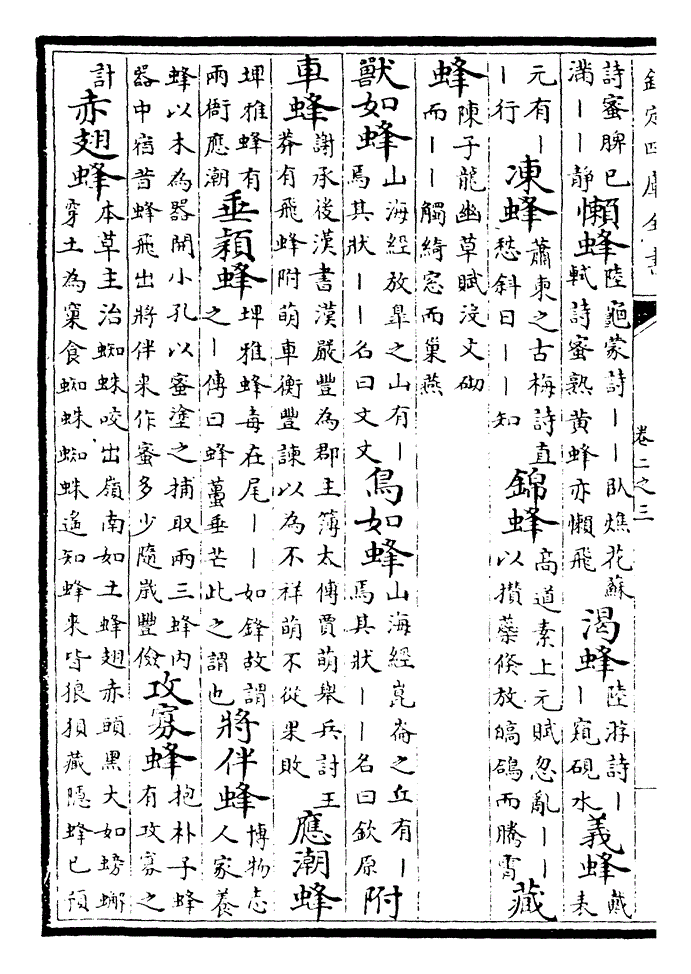 欽定四庫全書
卷二之三
詩蜜脾已滿丨丨靜 懶蜂 陸龜蒙詩丨丨臥燋花蘇軾詩蜜熟黄蜂亦懶飛 渴蜂 陸游詩丨丨窺硯水 義蜂 戴表
元有丨丨行 凍蜂 蕭東之古梅詩直愁斜日丨丨知 錦蜂 高道素上元賦忽亂丨丨以攢蘂倐放皜鴿而騰霄 藏
蜂 陳子龍幽草賦没文砌而丨丨觸綺窓而巢燕
獸如蜂 山海經放臯之山有丨焉其狀丨丨名曰文文 鳥如蜂 山海經崑崙之丘有丨焉其狀丨丨名曰欽原 附
車蜂 謝承後漢書漢嚴豐為郡主簿太傅賈萌舉兵討王莽有飛蜂附萌車衡豐諫以為不祥萌不從果敗 應潮蜂
埤雅蜂有兩衙應潮 垂穎蜂 埤雅蜂毒在尾丨丨如鋒故謂之丨傳曰蜂蠆垂芒此之謂也 將伴蜂 博物志人家養
蜂以木為器開小孔以蜜塗之捕取兩三蜂内器中宿昔蜂飛出將伴来作蜜多少隨歳豐儉 攻寡蜂 抱朴子蜂有攻寡之
計 赤翅蜂 本草主治蜘蛛咬出嶺南如土蜂翅赤頭黑大如螃蠏穿土為窠食蜘蛛蜘蛛遙知蜂来皆狼狽藏隠蜂已預